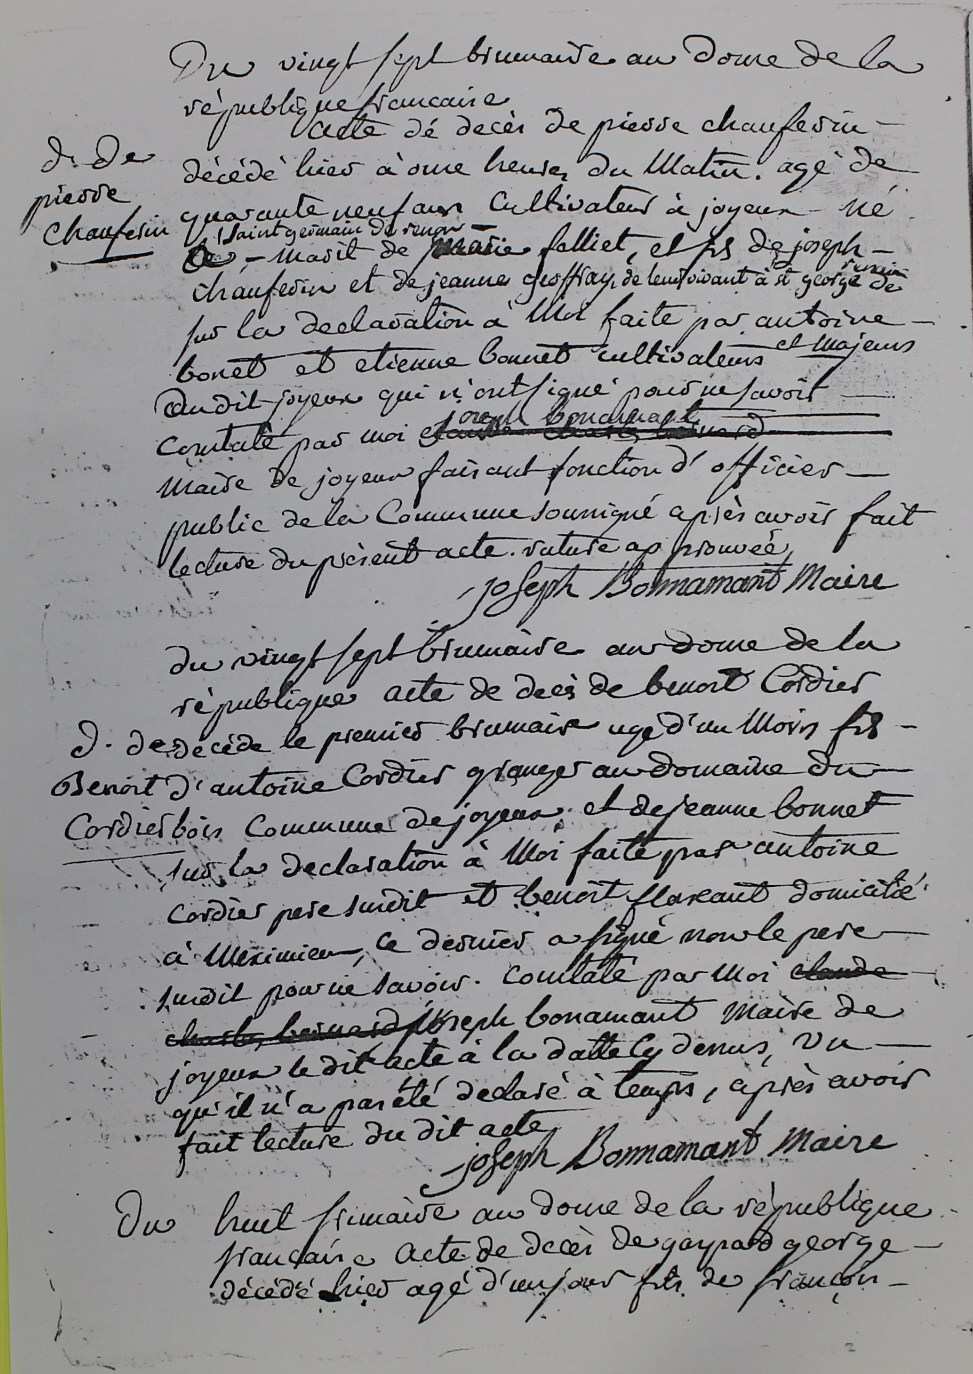 Du vingt sept brumaire an Douze de la
république française
acte dé decès de pierre chauferin
d. De
pierre
chauferin
décédé hier à onze heures du Matin. agé de
quarante neuf ans Cultivateur à joyeux né
à Saint germain de renon
marit de marie falliet, et fils de joseph
chauferin et de jeanne geoffray, de leur vivant à st george de renom
sur la declaration à Moi faite par antoine
bonet et etienne bonnet cultivateurs et Majeurs
Dudit joyeux qui n'ont signé pour ne savoir
constaté par moi joseph bonamant
Maire de joyeux faisant fonction d'officier
public de la Commune soussigné après avoir fait
lecture du présent acte. rature approuvée
joseph Bonnamant Maire
du vingt sept brumaire an douze de la
république acte de decès de benoit Cordier
d. de
Benoit
Cordier
decéde le premier brumaire agé d'un Mois fils
d'antoine Cordier granger au domaine du
bois Commune de joyeux et de jeanne bonnet
sur la declaration à Moi faite par antoine
Cordier pere susdit et benoit domicilié
à Meximieu, ce dernier a signé non le pere
susdit pour ne savoir. constaté par Moi claude
charles bernard joseph bonamant Maire de
joyeux le dit acte à la datte cy dessus, vu
qu'il n'a pas été declaré à temps, après avoir
fait lecture du dit acte
joseph Bonnamant Maire
Du huit frimaire an douze de la république
française Acte de decès de gaspard george
décédé hier agé d'un jour fils de françois